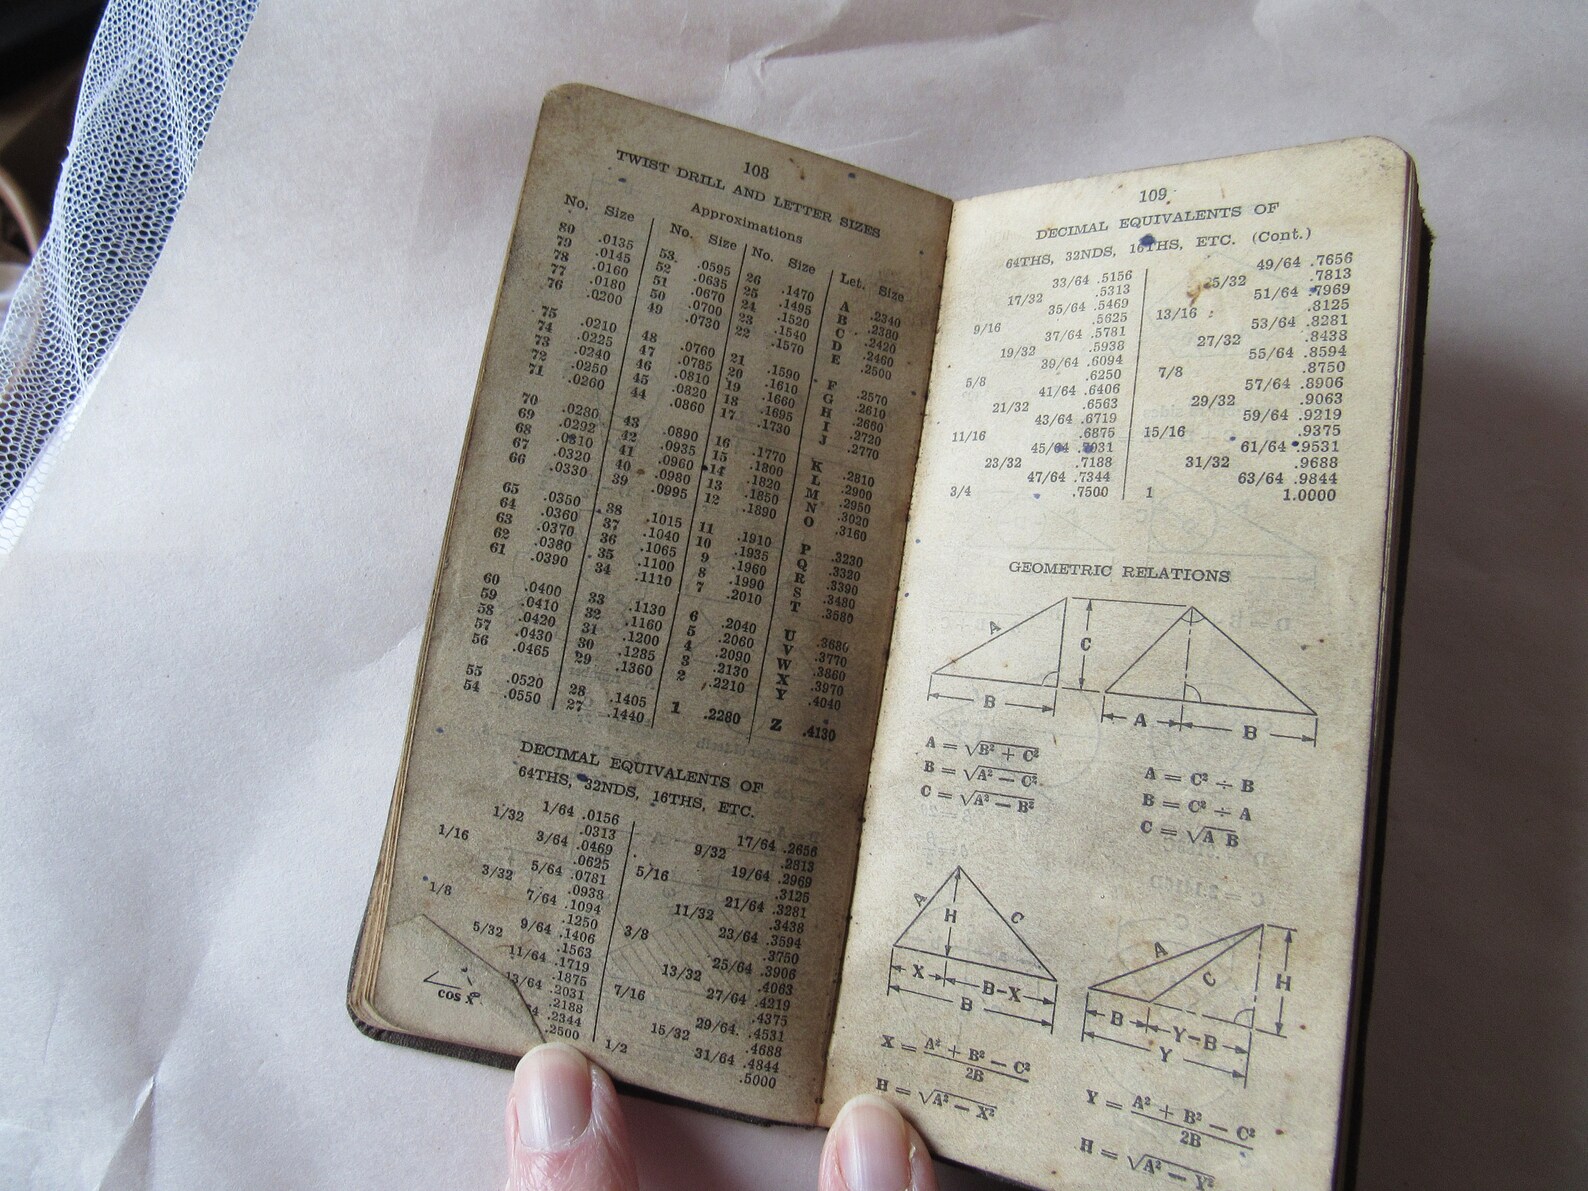 108
TWIST DRILL AND LETTER SIZES
Approximations
No. Size No. Size No. Size Let. Size
80 .0135 53 .0595 26 .1470 A .2340
79 .0145 52 .0635 25 .1495 B .2380
78 .0160 51 .0670 24 .1520 C .2420
77 .0180 50 .0700 23 .1540 D .2460
76 .0200 49 .0730 22 .1570 E .2500
75 .0210 48 .0760 21 .1590 F .2570
74 .0225 47 .0785 20 .1610 G .2610
73 .0240 46 .0810 19 .1660 H .2660
72 .0250 45 .0820 18 .1695 I .2720
71 .0260 44 .0860 17 .1730 J .2770
70 .0280 43 .0890 16 .1770 K .2810
69 .0292 42 .0935 15 .1800 L .2900
68 .0310 41 .0960 14 .1820 M .2950
67 .0320 40 .0980 13 .1850 N .3020
66 .0330 39 .0995 12 .1890 O .3160
65 .0350 38 .1015 11 .1910 P .3230
64 .0360 37 .1040 10 .1935 Q .3320
63 .0370 36 .1065 9 .1960 R .3390
62 .0380 35 .1100 8 .1990 S .3480
61 .0390 34 .1110 7 .2010 T .3580
60 .0400 33 .1130 6 .2040 U .3680
59 .0410 32 .1160 5 .2060 V .3770
58 .0420 31 .1200 4 .2090 W .3860
57 .0430 30 .1285 3 .2130 X .3970
56 .0465 29 .1360 2 .2210 Y .4040
55 .0520 28 .1405 1 .2280 Z .4130
54 .0550 27 .1440
DECIMAL EQUIVALENTS OF
64THS, 32NDS, 16THS, ETC.
1/64 .0156 17/64 .2656
1/32 .0313 9/32 .2813
3/64 .0469 19/64 .2969
1/16 .0625 5/16 .3125
5/64 .0781 21/64 .3281
3/32 .0938 11/32 .3438
7/64 .1094 23/64 .3594
1/8 .1250 3/8 .3750
9/64 .1406 25/64 .3906
5/32 .1563 13/32 .4063
11/64 .1719 27/64 .4219
.1875 7/16 .4375
13/64 .2031 29/64 .4531
.2188 15/32 .4688
.2344 31/64 .4844
.2500 1/2 .5000
cos x
109
DECIMAL EQUIVALENTS OF
64THS, 32NDS, 16THS, ETC. (Cont.)
33/64 .5156 49/64 .7656
17/32 .5313 25/32 .7813
35/64 .5469 51/64 .7969
9/16 .5625 13/16 .8125
37/64 .5781 53/64 .8281
19/32 .5938 27/32 .8438
39/64 .6094 55/64 .8594
5/8 .6250 7/8 .8750
41/64 .6406 57/64 .8906
21/32 .6563 29/32 .9063
43/64 .6719 59/64 .9219
11/16 .6875 15/16 .9375
45/64 .7031 61/64 .9531
23/32 .7188 31/32 .9688
47/64 .7344 63/64 .9844
3/4 .7500 1 1.0000
GEOMETRIC RELATIONS
A C
B A B
A = √B² + C²
B = √A² − C²
C = √A² − B²
A = C² ÷ B
B = C² ÷ A
C = √A B
A H C
X B-X
B
A C H
B Y-B
Y
X = A² + B² − C²
2B
H = √A² − X²
Y = A² + B² − C²
2B
H = √A² − Y²